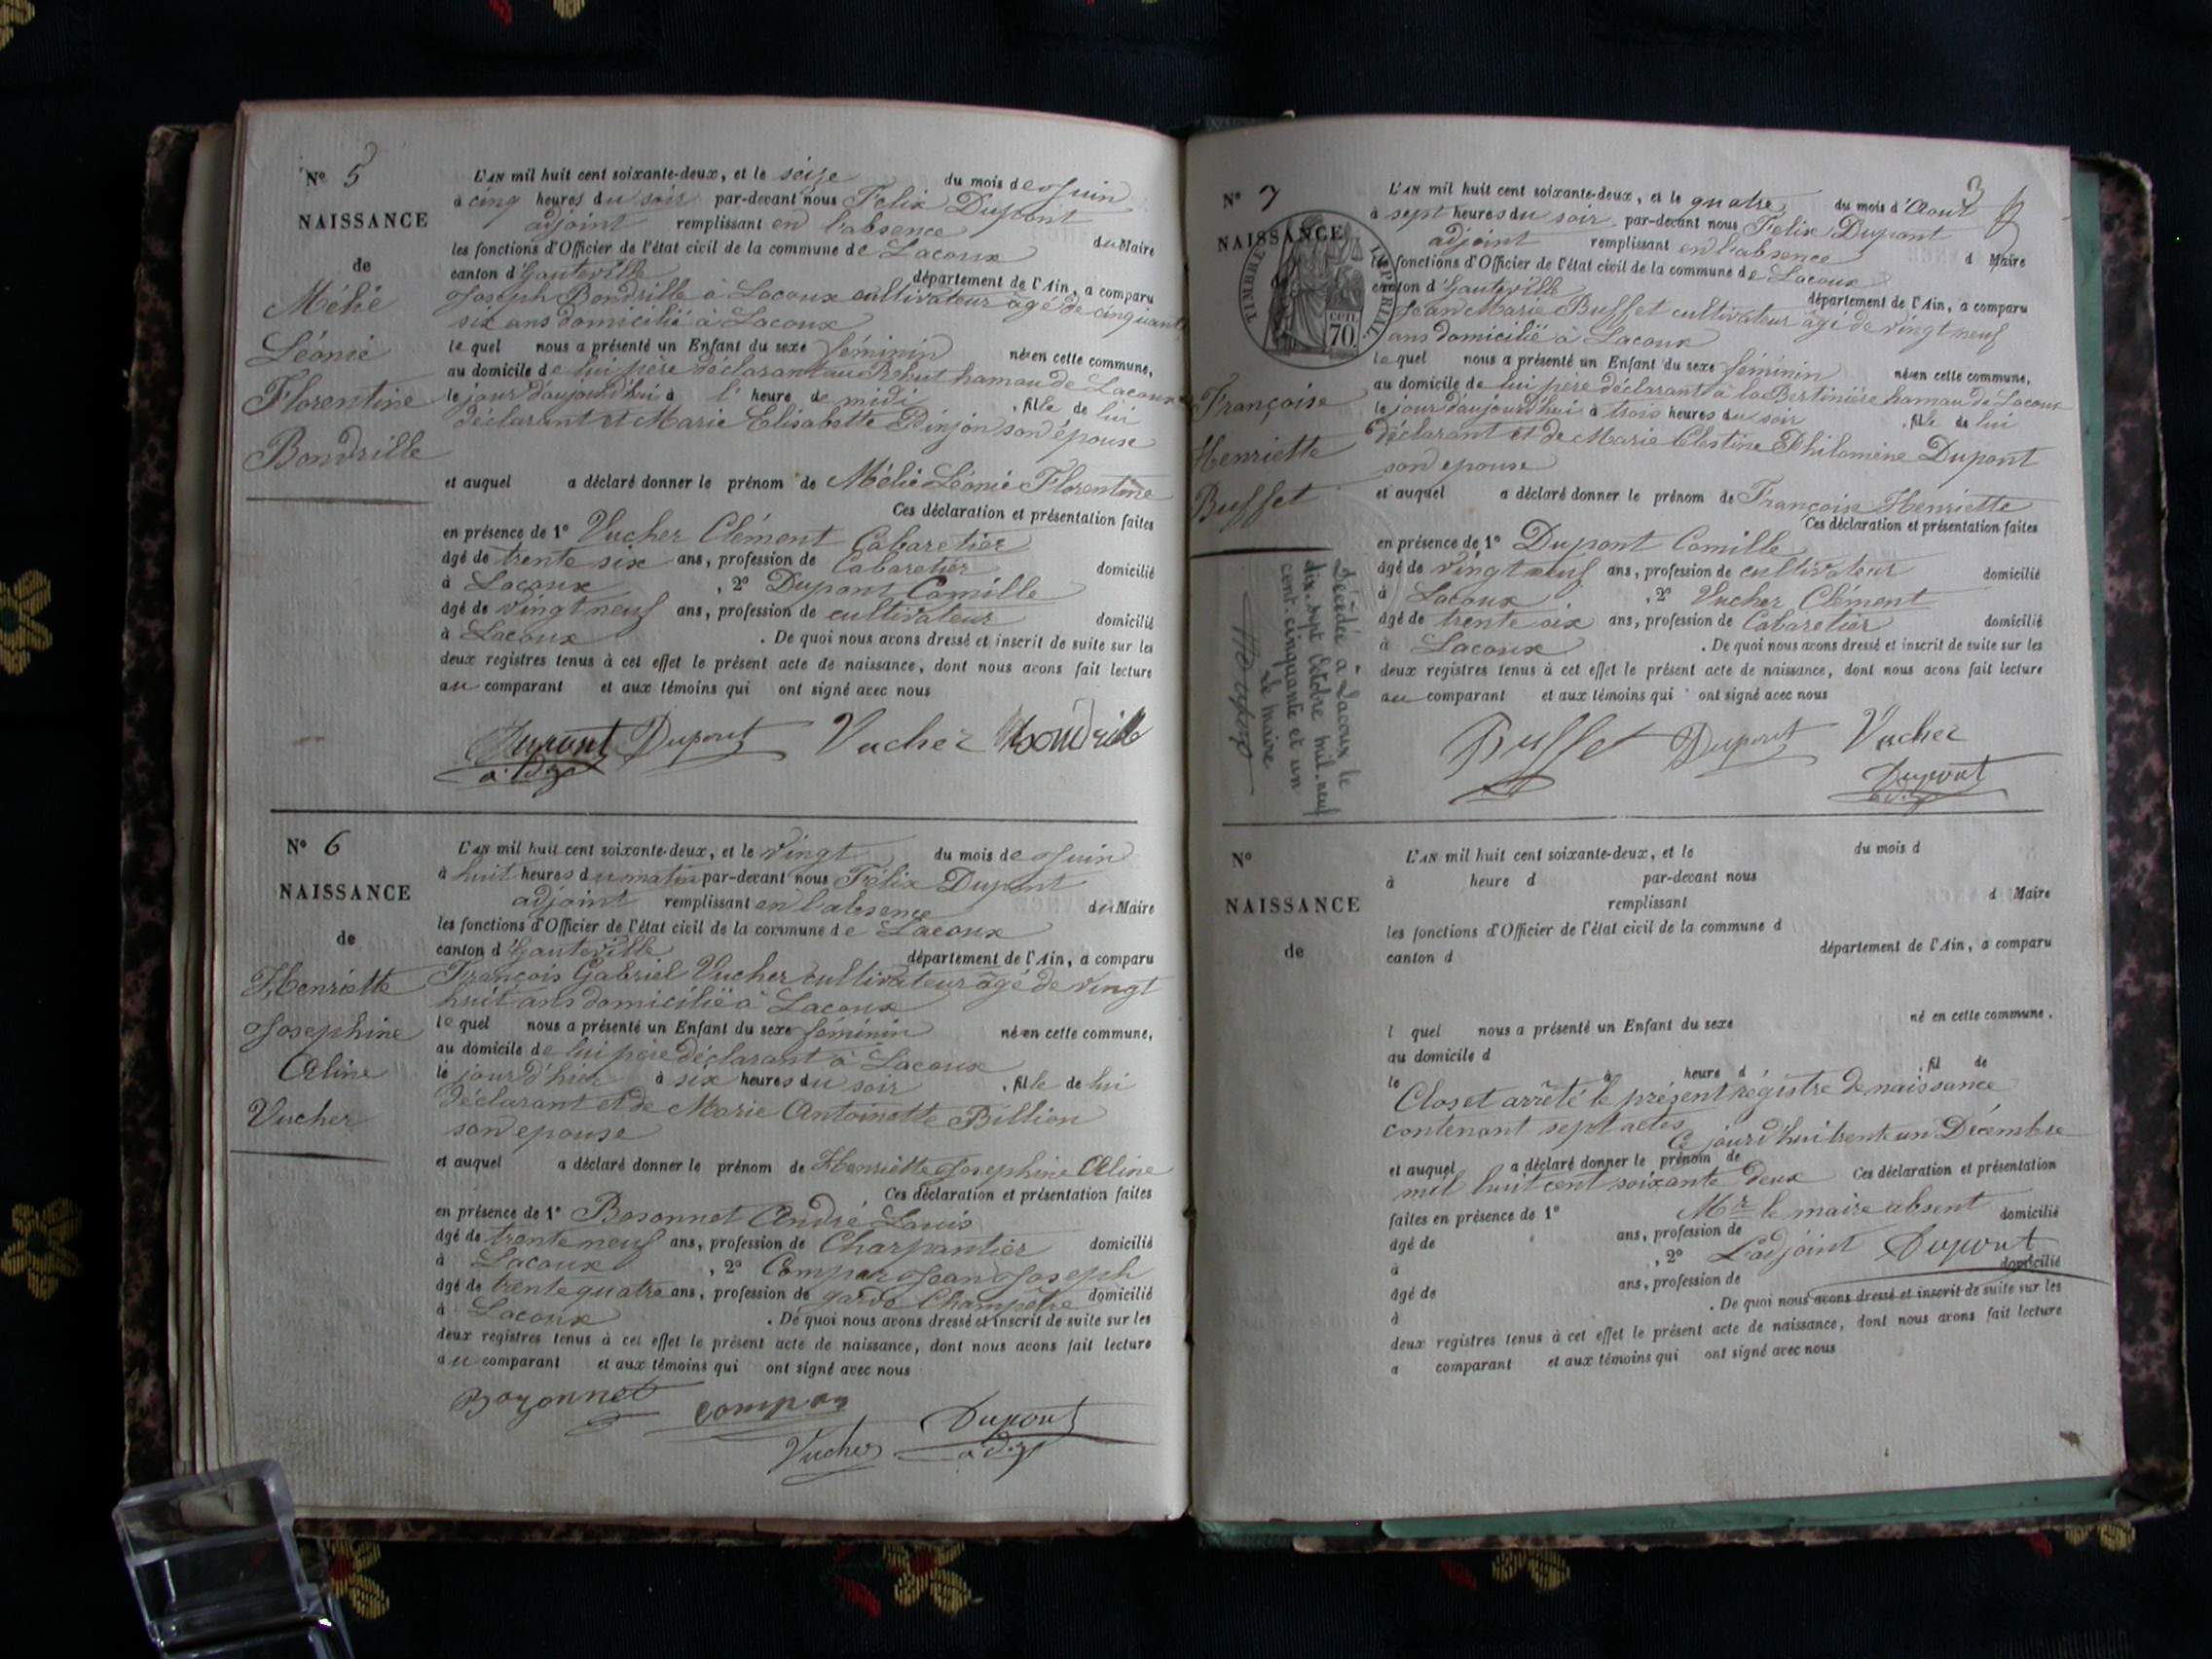 N° 5
NAISSANCE
de
Mélié
Léonie
Florentine
Bondrille
L'AN mil huit cent soixante-deux, et le seize du mois de Juin
à cinq heures du soir par-devant nous Félix Dupont
adjoint remplissant en l'absence du Maire
les fonctions d'Officier de l'état civil de la commune de Lacoux
canton d'Hauteville département de l'Ain, a comparu
Joseph Bondrille à Lacoux cultivateur âgé de cinquante
six ans domicilié à Lacoux
lequel nous a présenté un Enfant du sexe féminin né en cette commune,
au domicile de lui père déclarant au hamau de Lacoux
le jour d'aujourd'hui à l' heure de midi , fille de lui
déclarant et Marie Elisabette Pinjon son épouse
et auquel a déclaré donner le prénom de Mélié Léonie Florentine
Ces déclaration et présentation faites
en présence de 1° Vucher Clément Cabaretier
âgé de trente six ans, profession de Cabaretier domicilié
à Lacoux , 2° Dupont Camille
âgé de vingt neuf ans, profession de cultivateur domicilié
à Lacoux . De quoi nous avons dressé et inscrit de suite sur les
deux registres tenus à cet effet le présent acte de naissance, dont nous avons fait lecture
au comparant et aux témoins qui ont signé avec nous
Dupont Dupont Vucher Bondrille
adj
N° 6
NAISSANCE
de
Henriette
Josephine
Aline
Vucher
L'AN mil huit cent soixante-deux, et le vingt du mois de Juin
à huit heures du matin par-devant nous Félix Dupont
adjoint remplissant en l'absence du Maire
les fonctions d'Officier de l'état civil de la commune de Lacoux
canton d'Hauteville département de l'Ain, a comparu
François Gabriel Vucher cultivateur âgé de vingt
huit ans domicilié à Lacoux
lequel nous a présenté un Enfant du sexe féminin né en cette commune,
au domicile de lui père déclarant à Lacoux
le jour d'hier à six heures du soir , fille de lui
déclarant et de Marie Antoinette Billion
son epouse
et auquel a déclaré donner le prénom de Henriette Josephine Aline
Ces déclaration et présentation faites
en présence de 1° Bosonnet André Louis
âgé de trente neuf ans, profession de Charpantier domicilié
à Lacoux , 2° Compan Jean Joseph
âgé de trente quatre ans, profession de garde Champetre domicilié
à Lacoux . De quoi nous avons dressé et inscrit de suite sur les
deux registres tenus à cet effet le présent acte de naissance, dont nous avons fait lecture
au comparant et aux témoins qui ont signé avec nous
Bozonnet Compan Dupont
Vucher adj
3
N° 7
NAISSANCE
de
TIMBRE IMPERIAL
CENT. 70.
Françoise
Henriette
Buffet
L'AN mil huit cent soixante-deux, et le quatre du mois d'Aout
à sept heures du soir par-devant nous Félix Dupont
adjoint remplissant en l'absence d Maire
les fonctions d'Officier de l'état civil de la commune de Lacoux
canton d'Hauteville département de l'Ain, a comparu
Jean Marie Buffet cultivateur âgé de vingt neuf
ans domicilié à Lacoux
lequel nous a présenté un Enfant du sexe féminin né en cette commune,
au domicile de lui père déclarant à la Bertinière hamau de Lacoux
le jour d'aujourd'hui à trois heures du soir , fille de lui
déclarant et de Marie Clestine Philomène Dupont
son epouse
et auquel a déclaré donner le prénom de Françoise Henriette
Ces déclaration et présentation faites
en présence de 1° Dupont Camille
âgé de vingt neuf ans, profession de cultivateur domicilié
à Lacoux , 2° Vucher Clément
âgé de trente six ans, profession de Cabaretier domicilié
à Lacoux . De quoi nous avons dressé et inscrit de suite sur les
deux registres tenus à cet effet le présent acte de naissance, dont nous avons fait lecture
au comparant et aux témoins qui ont signé avec nous
Buffet Dupont Vucher
Dupont
adj
Décédée à Lacoux le
dix-sept Octobre mil-neuf
cent-cinquante et un
Le maire
N°
NAISSANCE
de
L'AN mil huit cent soixante-deux, et le du mois d
à heure d par-devant nous
remplissant d Maire
les fonctions d'Officier de l'état civil de la commune d
canton d département de l'Ain, a comparu
l quel nous a présenté un Enfant du sexe né en cette commune.
au domicile d
le à heure d , fil de
Clos et arrêté le présent régistre de naissance
contenant sept actes
Ce jourd'hui trente un Décembre
et auquel a déclaré donner le prénom de
mil huit cent soixante deux Ces déclaration et présentation
faites en présence de 1° Mr le maire absent domicilié
âgé de ans, profession de
à , 2° L'adjoint Dupont
domicilié
âgé de ans, profession de
à . De quoi nous avons dressé et inscrit de suite sur les
deux registres tenus à cet effet le présent acte de naissance, dont nous avons fait lecture
a comparant et aux témoins qui ont signé avec nous